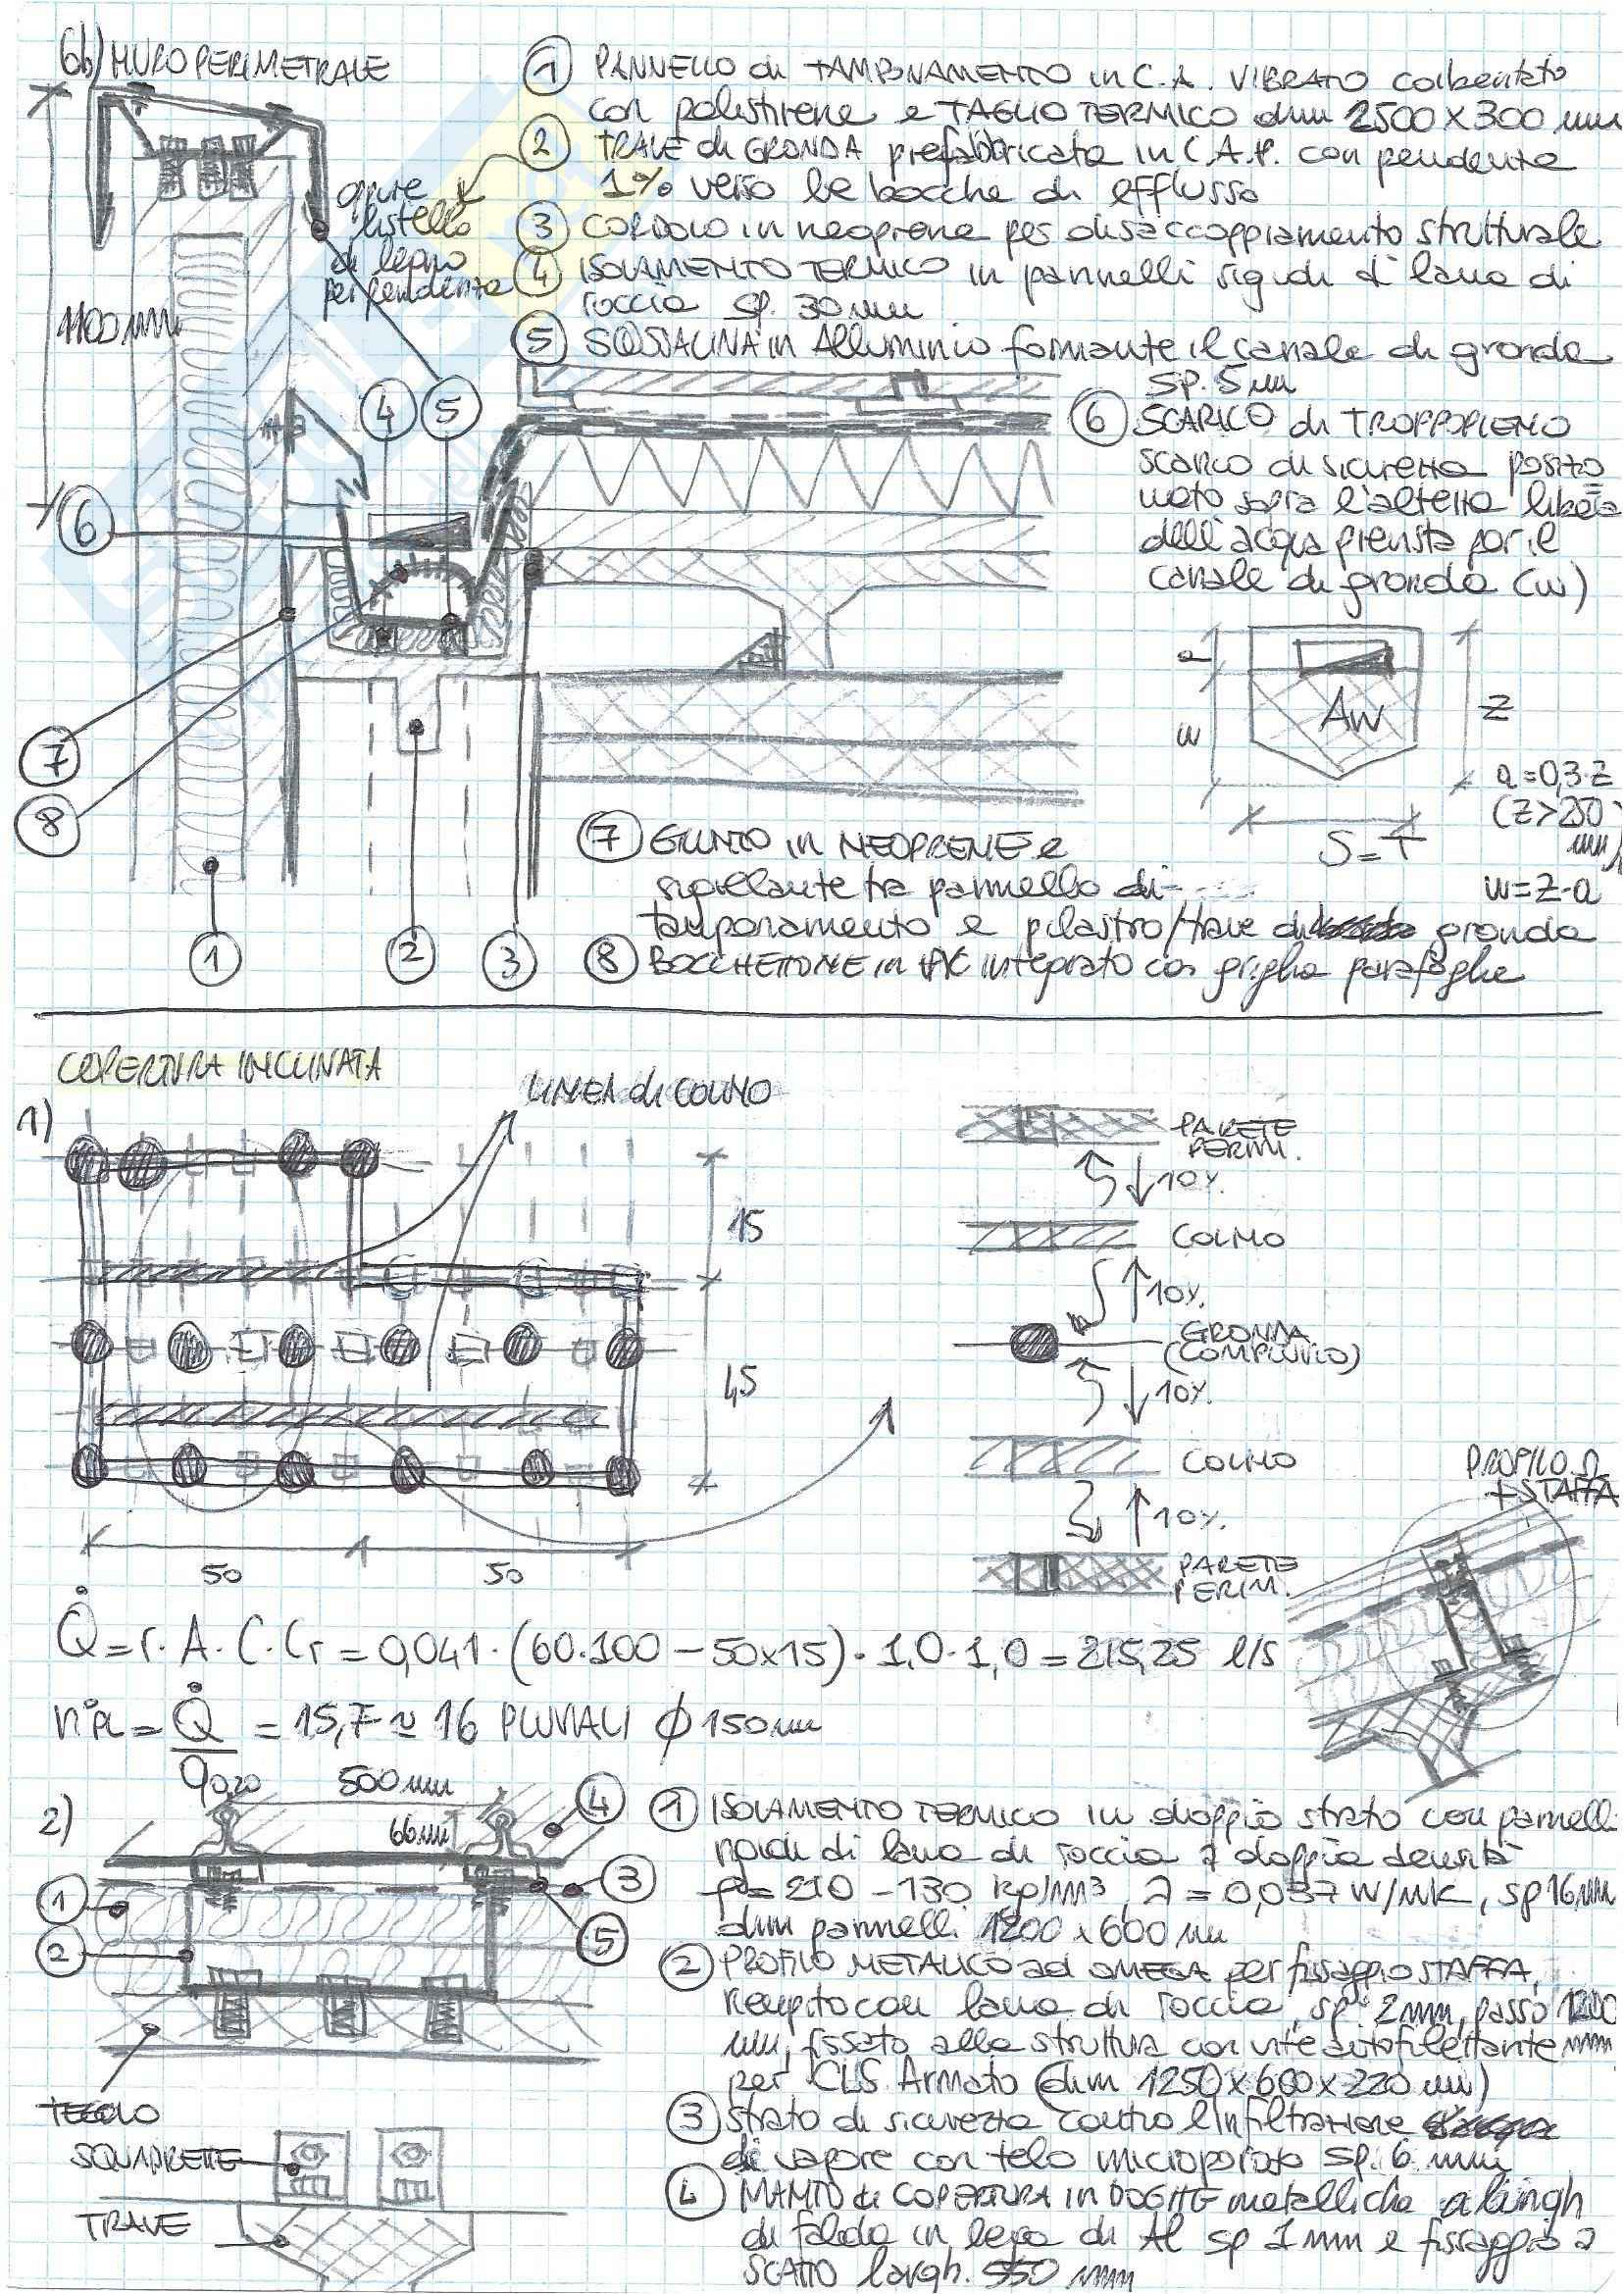 6b) MURO PERIMETRALE
1 PANNELLO di TAMPONAMENTO in C.A. VIBRATO coibentato
con polistirene e TAGLIO TERMICO dim 2500 X 300 mm
2 TRAVE di GRONDA prefabbricata in C.A.P. con pendenza
1% verso le bocche di efflusso
oppure
listello
di legno
per pendenza
3 CORDOLO in neoprene per disaccoppiamento strutturale
4 ISOLAMENTO TERMICO in pannelli rigidi di lana di
roccia sp. 30 mm
5 SCOSSALINA in Alluminio formante il canale di gronda
sp. 5 mm
1100 mm
4 5
6 SCARICO di TROPPOPIENO
scarico di sicurezza posizio=
nato sopra l'altezza libera
dell'acqua prevista per il
canale di gronda (w)
6
a
w
Aw
Z
a=0,3·Z
(Z>250
mm)
S=T
w=Z-a
7
8
1 2 3
7 GIUNTO in NEOPRENE e
sigillante tra pannello di
tamponamento e pilastro/trave di gronda
8 BOCCHETTONE in PVC integrato con griglia parafoglie
COPERTURA INCLINATA
LINEA di COLMO
1)
15
45
50 50
PARETE
PERIM.
10%
COLMO
10%.
GRONDA
(COMPLUVIO)
10%.
COLMO
10%.
PARETE
PERIM.
PROFILO Ω
+ STAFFA
Q = r. A. C. Cr = 0,041 · (60·100 – 50x15) · 1,0 · 1,0 = 215,25 l/s
= Q = 15,7 ≃ 16 PLUVIALI ϕ 150 mm
2)
500 mm
66 mm
4
3
5
1
2
1 ISOLAMENTO TERMICO in doppio strato con pannelli
rigidi di lana di roccia a doppia densità
ρ = 210 – 130 kg/m³, λ = 0,037 W/mK, sp 16 mm
dim pannelli 1200 x 600 mm
2 PROFILO METALICO ad OMEGA per fissaggio STAFFA,
riempito con lana di roccia, sp. 2mm, passo 1200
mm, fissato alla struttura con vite autofilettante
per CLS Armato (dim 1250 x 600 x 220 mm)
3 strato di sicurezza contro l'infiltrazione
di vapore con telo microporoso sp. 6 mm
4 MANTO di COPERTURA in DOGHE metalliche a lungh
di falda in lega di Al sp 1 mm e fissaggio a
SCATTO largh. 550 mm
TEGOLO
SQUADRETTE
TRAVE